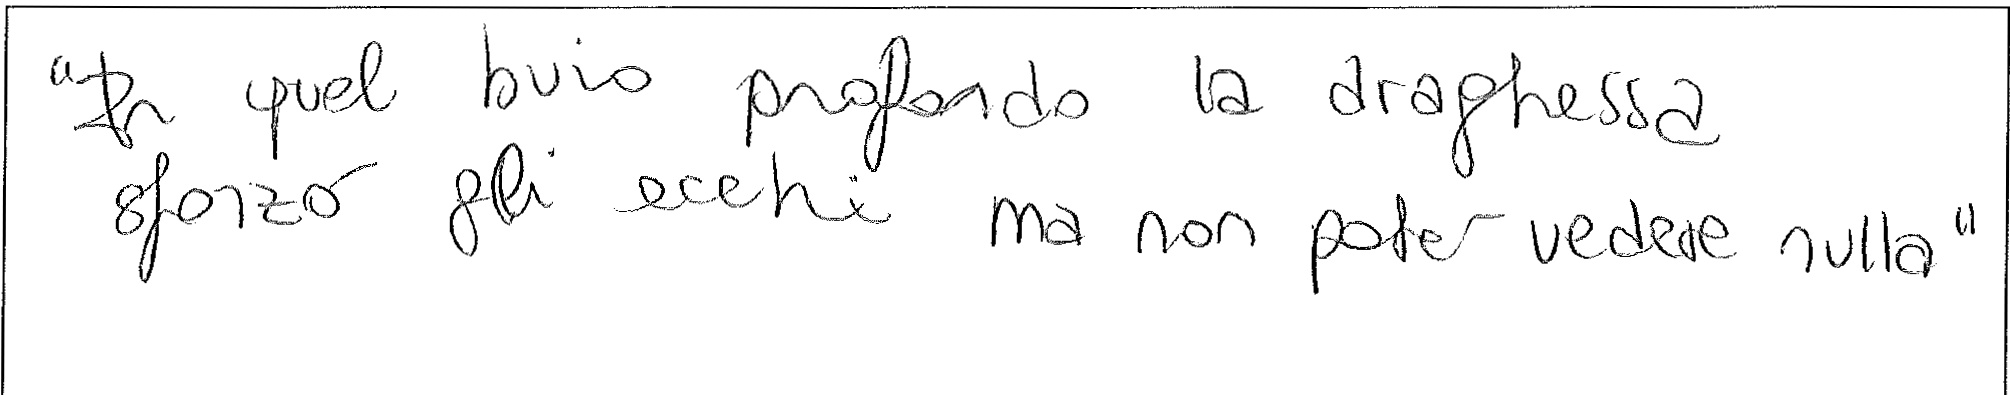 "In quel buio profondo la draghessa
sforzò gli occhi ma non poter vedere nulla"